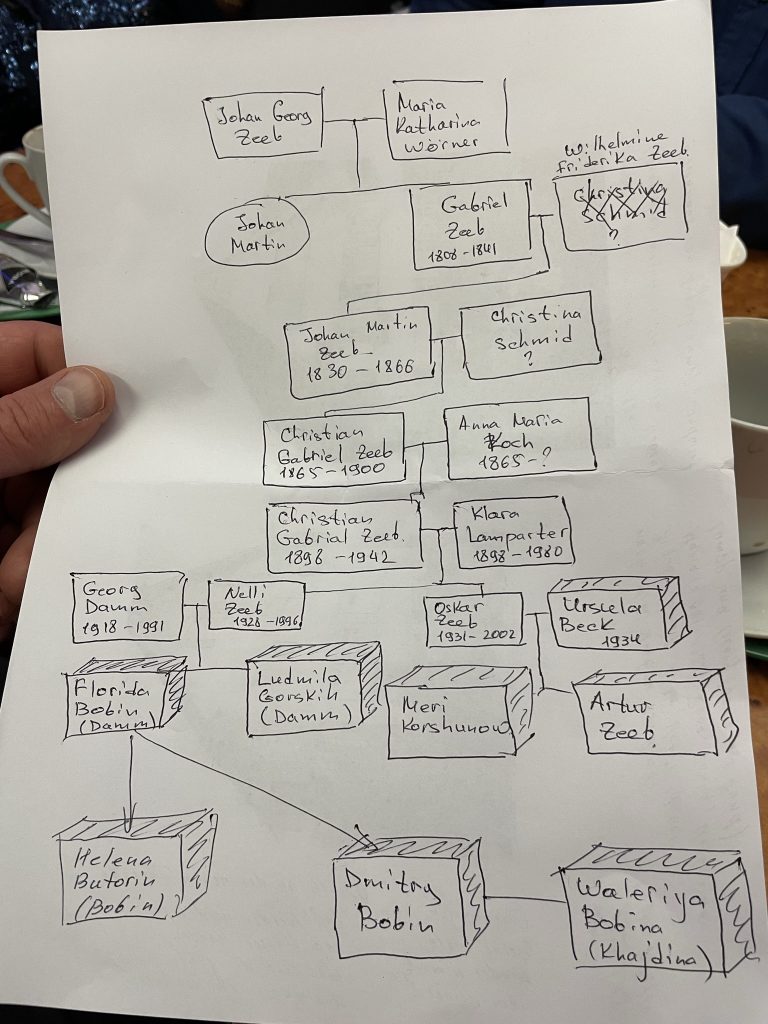 Johan Georg
Zeeb
Maria
Katharina
Wörner
Johan
Martin
Gabriel
Zeeb
1808-1841
Wilhelmine
Friderika Zeeb.
Christina
Schmid
?
Johan Martin
Zeeb
1830-1866
Christina
Schmid
?
Christian
Gabriel Zeeb
1865-1900
Anna Maria
Koch
1865-?
Christian
Gabrial Zeeb.
1898-1942
Klara
Lamparter
1898-1980
Georg
Damm
1918-1991
Nelli
Zeeb
1928-1996
Oskar
Zeeb
1931-2002
Ursula
Beck
1934
Florida
Bobin
(Damm)
Ludmila
Gorskih
(Damm)
Meri
Korshunow
Artur
Zeeb.
Helena
Butorin
(Bobin)
Dmitry
Bobin
Waleriya
Bobina
(Khajdina)